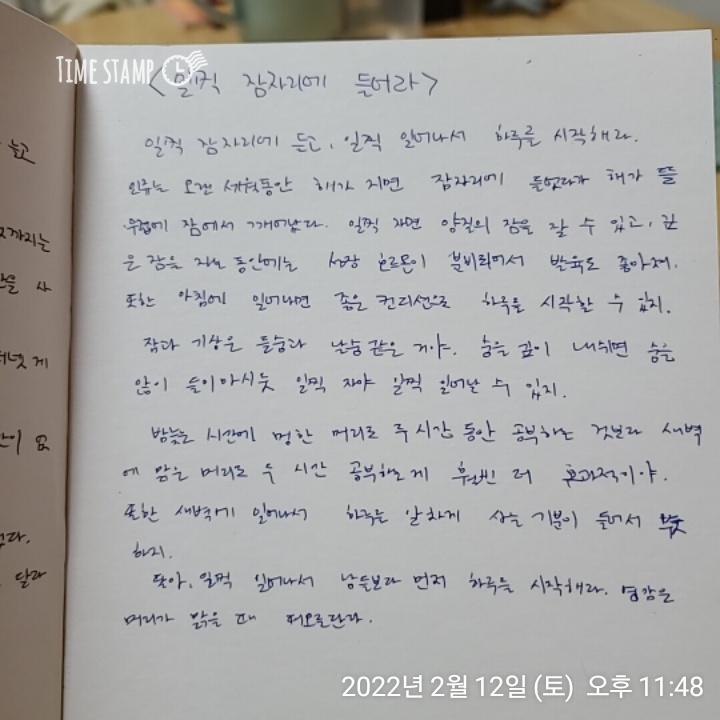 TIME STAMP
<일찍 잠자리에 들어라>
일찍 잠자리에 들고, 일찍 일어나서 하루를 시작해라.
인류는 오랜 세월동안 해가 지면 잠자리에 들었다가 해가 뜰
무렵에 잠에서 깨어났다. 일찍 자면 양질의 잠을 잘 수 있고, 깊
은 잠을 자는 동안에는 성장 호르몬이 분비되어서 발육도 좋아져.
또한 아침에 일어나면 좋은 컨디션으로 하루를 시작할 수 있지.
잠과 기상은 들숨과 날숨 같은 거야. 숨을 깊이 내쉬면 숨을
많이 들이마시듯 일찍 자야 일찍 일어날 수 있지.
밤늦은 시간에 멍한 머리로 두 시간 동안 공부하는 것보다 새벽
에 맑은 머리로 두 시간 공부하는게 훨씬 더 효과적이야.
또한 새벽에 일어나서 하루를 알차게 사는 기분이 들어서 뿌듯
하지.
딸아, 일찍 일어나서 남들보다 먼저 하루를 시작해라. 영감은
머리가 맑을 때 떠오른단다.
늦고
까지는
사
게
달라
2022년 2월 12일 (토) 오후 11:48